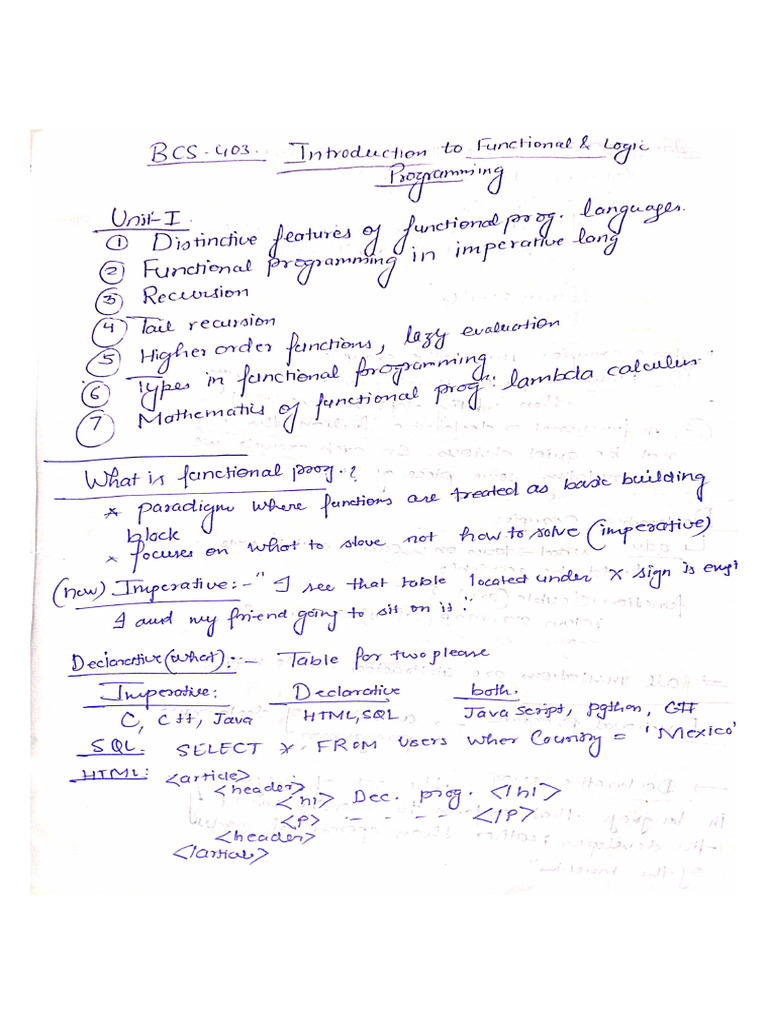 BCS-403. Introduction to Functional & Logic
Programming
Unit-I.
① Distinctive features of functional prog. languages.
② Functional programming in imperative lang
③ Recursion
④ Tail recursion
⑤ Higher order functions, lazy evaluation
⑥ Types in functional programming
⑦ Mathematics of functional prog.: lambda calculus.
What is functional prog.?
* paradigm where functions are treated as basic building
block
* focuses on what to slove not how to solve (imperative)
(how) Imperative:- " I see that table located under X sign is empt
I and my friend going to sit on is."
Declarative (what):- Table for two please
Imperative: Declarative both.
C, C++, Java HTML, SQL Java Script, python, C#
SQL: SELECT * FROM users wher Country = 'Mexico'
HTML: <article>
<header>
<h1> Dec. prog. </h1>
<P> - - - - </P>
<header>
</artical>